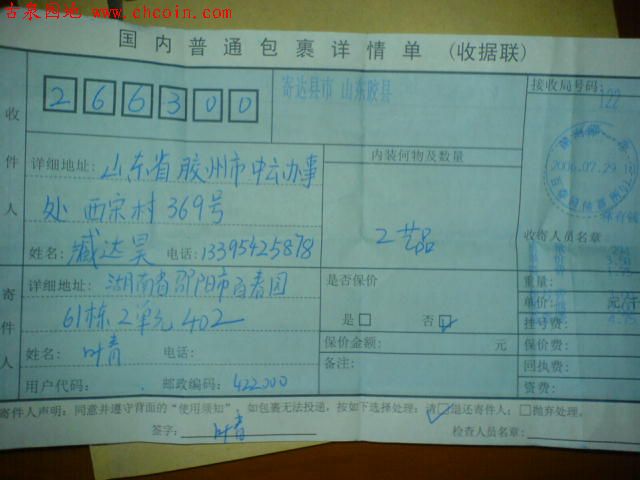 古泉园地 www.chcoin.com
国内普通包裹详情单 (收据联)
266300
寄达县市 山东胶县
接收局号码:
122
收件人
详细地址: 山东省胶州市中云办事
处 西宋村369号
姓名: 臧达昊 电话: 13395425878
内装何物及数量
工艺品
2006.07.29
收寄人员名章:
寄件人
详细地址: 湖南省邵阳市百春园
61栋2单元402
姓名: 叶青 电话:
用户代码: 邮政编码: 422000
是否保价
是 否
保价金额: 元
备注:
重量:
单价: 元
挂号费:
保价费:
回执费:
资费:
寄件人声明: 同意并遵守背面的“使用须知”, 如包裹无法投递, 按如下选择处理: 请 退还寄件人; 抛弃处理。
签字: 叶青
检查人员名章: